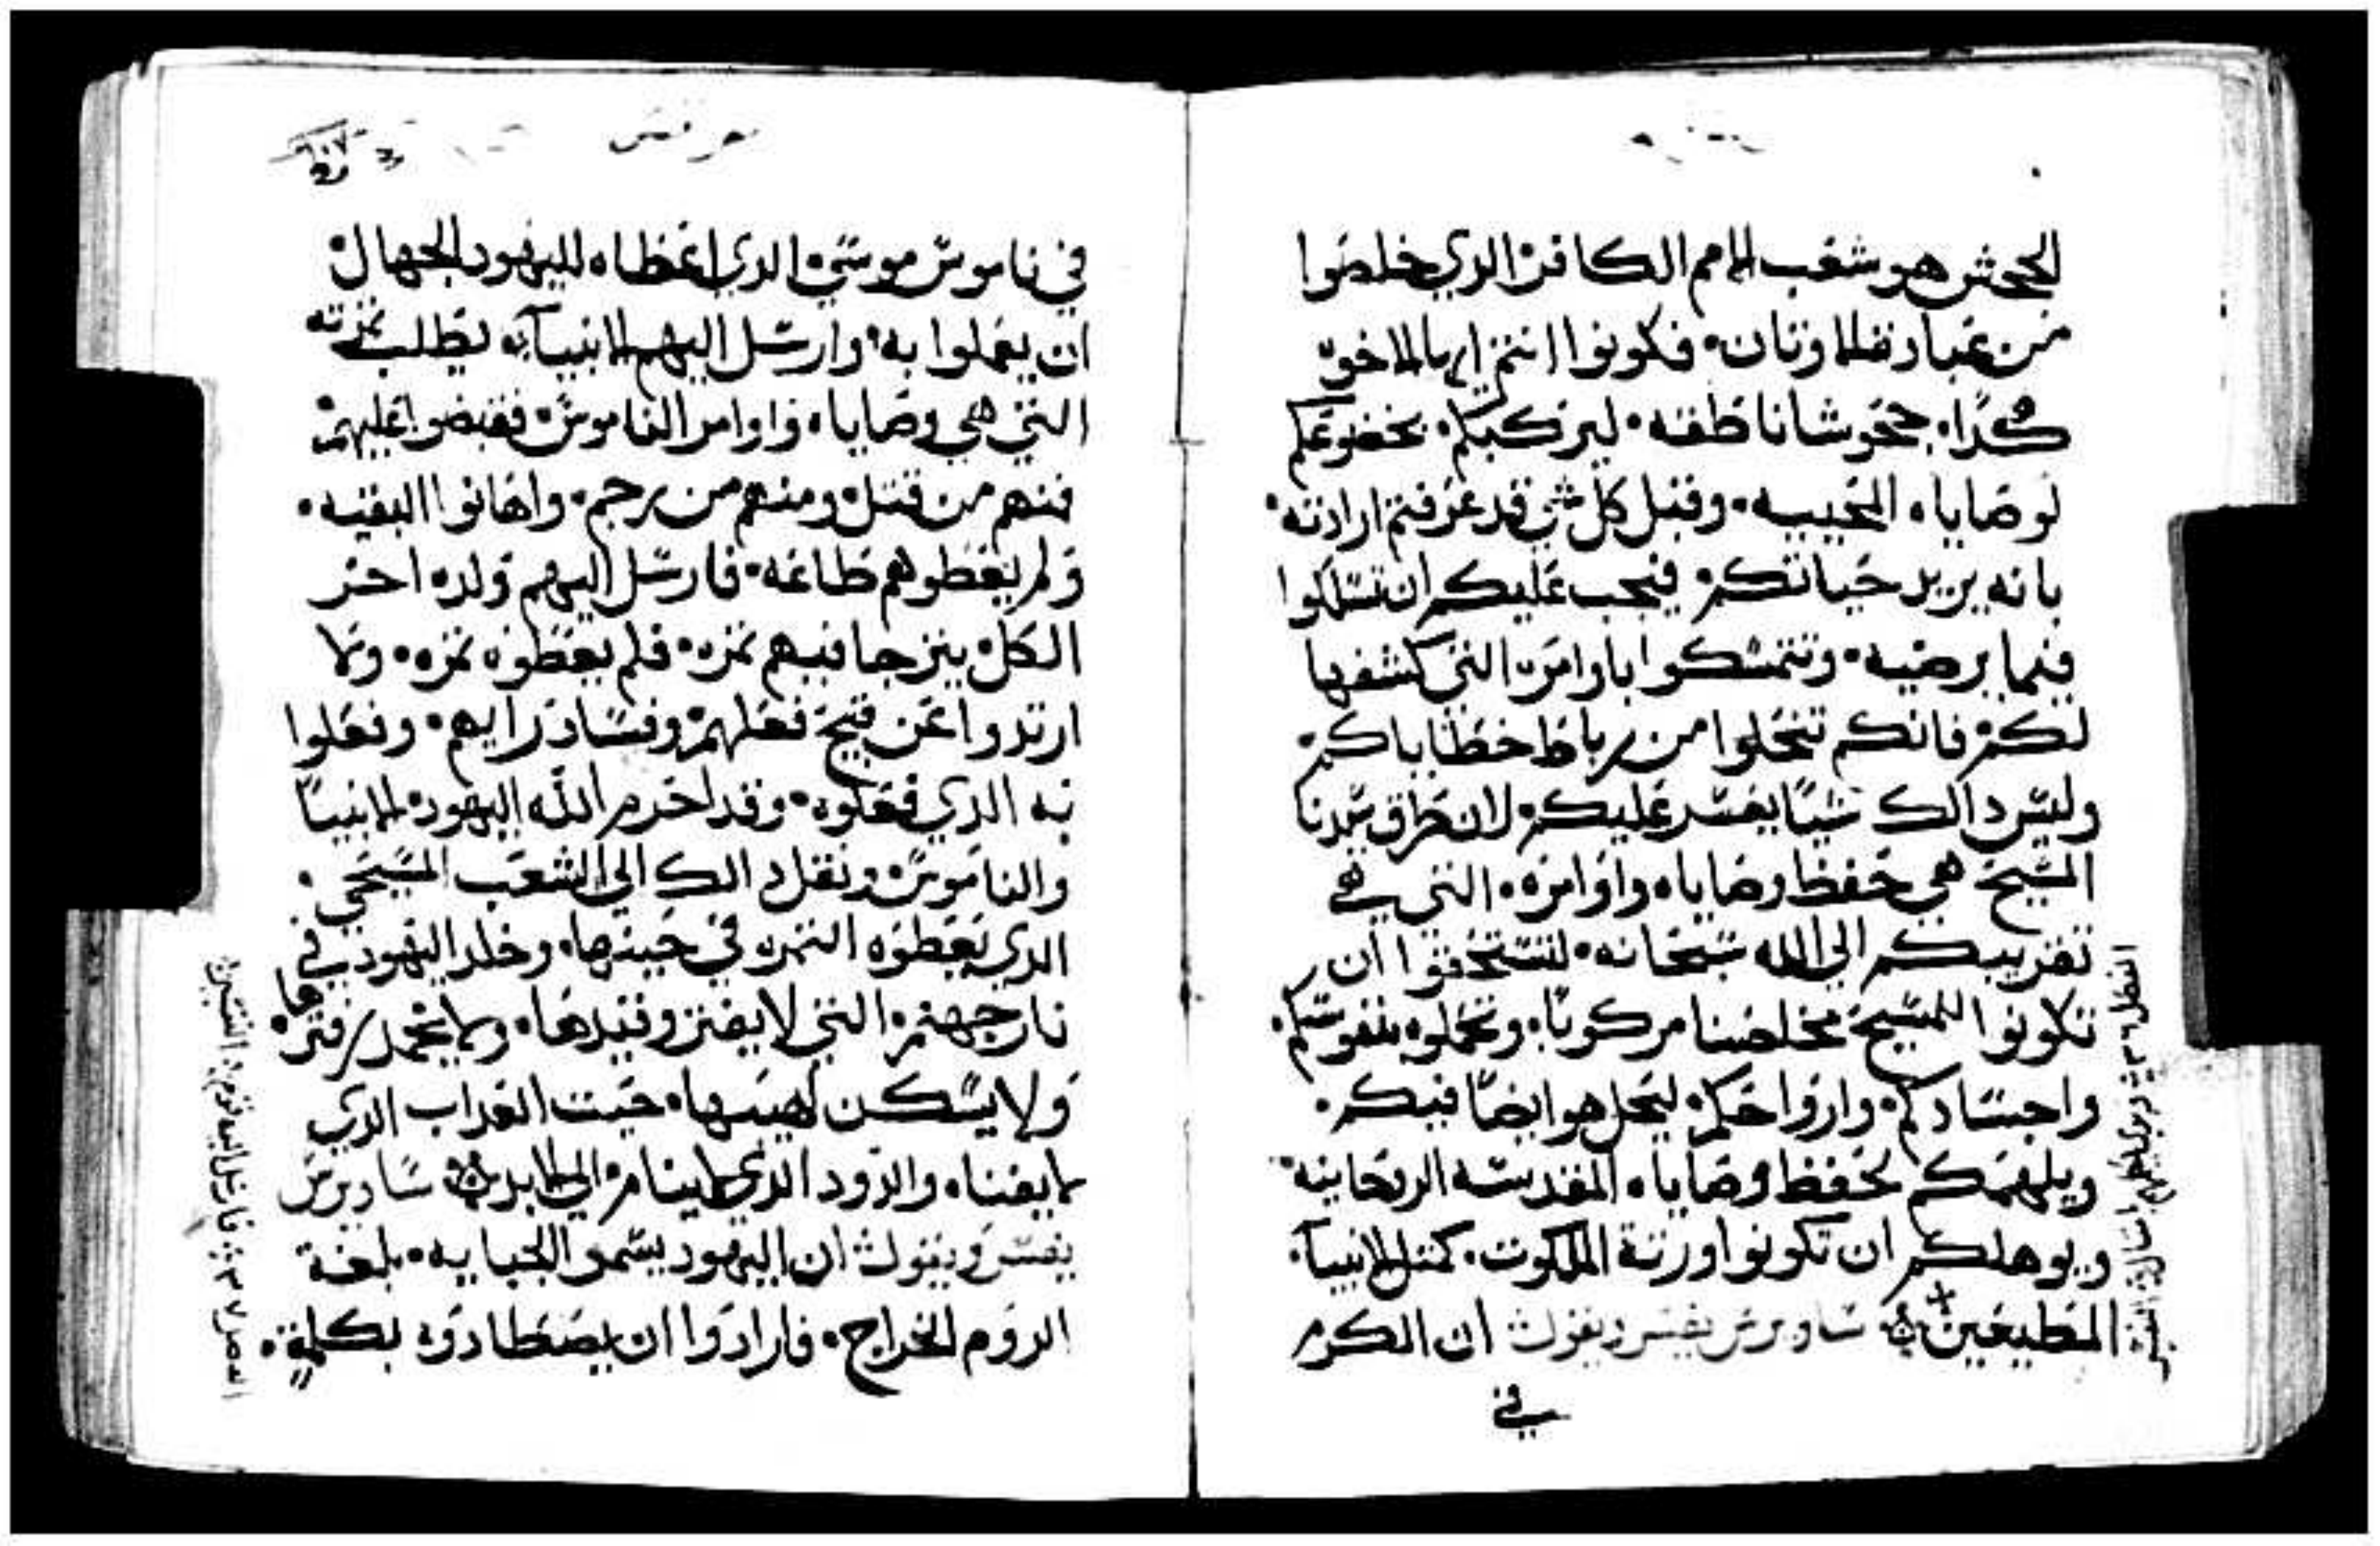 الجحش هو شعب الامم الكافره الدي خلصوا
من عبادة الاوتان. فكونوا انتم ايها الاخوه
هكدا. جحوشا ناطقه. ليركبكم. بخضوعكم
لوصاياه المحييه. وقبل كل شي قد عرفتم ارادته.
بانه يريد حياتكم. فيجب عليكم ان تسلكوا
فيما يرضيه. وتتمسكوا باوامره التي كشفها
لكم. فانكم تنحلوا من رباط خطاياكم.
وليس دالك شيا يعسر عليكم. لان طرق سيدنا
المسيح هي حفظ وصاياه واوامره. التي هي
تقريبكم الي الله سبحانه. لتستحقوا ان
تكونوا للمسيح مخلصنا مركوبا. وتحملوه بنفوسكم.
واجسادكم. وارواحكم. ليحل هو ايضا فيكم.
ويلهمكم لحفظ وصاياه المقدسه الروحانيه.
ويوهلكم ان تكونوا ورتة الملكوت. كمتل الانبيا.
المطيعين ساويرس يفسر ويقول ان الكرم
في
في ناموس موسي. الدي اعطاه لليهود الجهال.
ان يعملوا به. وارسل اليهم الانبيآء يطلب تمرته
التي هي وصاياه واوامر الناموس. فقبضوا عليهم.
فمنهم من قتل. ومنهم من رجم. واهانوا البقيه.
ولم يعطوهم طاعه. فارسل اليهم ولده اخر
الكل. يترجا فيهم تمره. فلم يعطوه تمره. ولا
ارتدوا عن قبيح فعلهم. وفساد رايهم. وفعلوا
به الدي فعلوه. وقد احرم الله اليهود. الانبيا
والناموس. ونقل دالك الي الشعب المسيحي.
الدي يعطوه التمره في حينها. وخلد اليهود في
نار جهنم. التي لا يفتر وقيدها. ولا يخمد زفيرها.
ولا يسكن لهيبها. حيت العداب الدي
لا يفنا. والدود الدي لا ينام. الي الابد ساويرس
يفسر ويقول ان اليهود يسموا الجبايه. بلغة
الروم الخراج. فارادوا ان يصطادوه بكلمة.